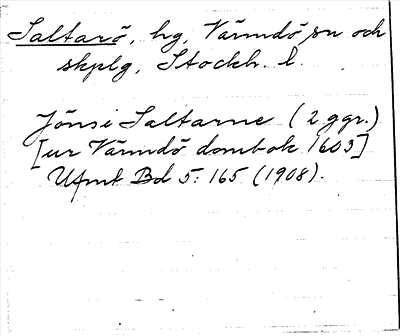 Saltarö, hg, Värmdö sn och
skplg, Stockh. l.
Jöns i Saltarne (2 ggr.)
[ur Värmdö dombok 1603]
Ufmt Bd 5: 165 (1908).